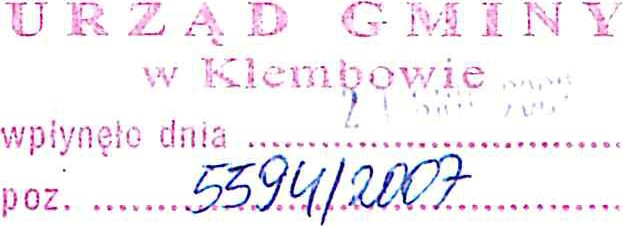 URZĄD GMINY
w Klembowie
wpłynęło dnia ........................................
poz. ........5594/2007........................